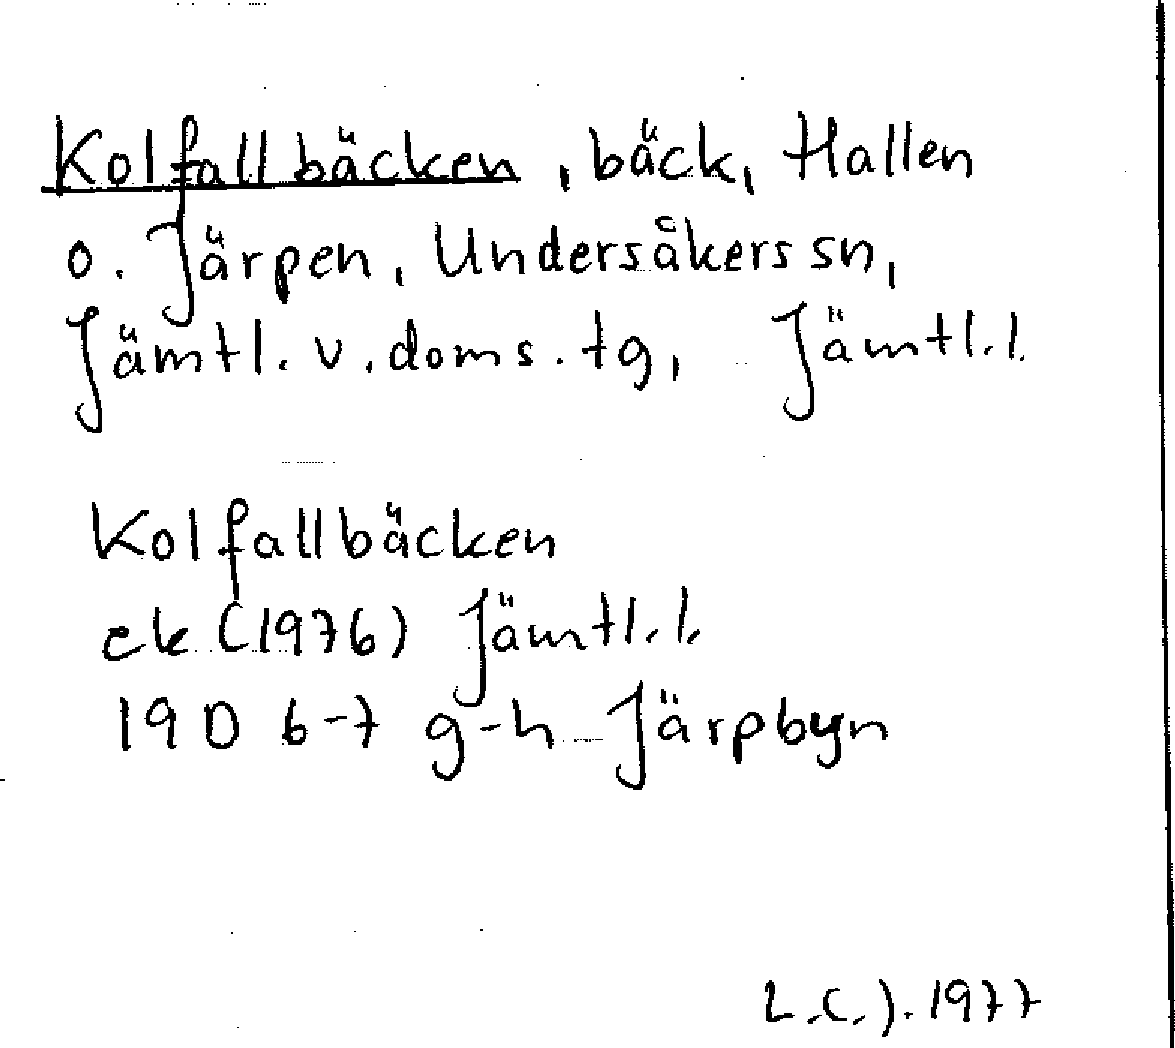 Kolfallbäcken, bäck, Hallen
o. Järpen, Undersåkers sn,
Jämtl. v. doms. tg, Jämtl. l.
Kolfallbäcken
ek (1976) Jämtl. l.
19 D 6-7 g-h Järpbyn
L.C.J. 1977